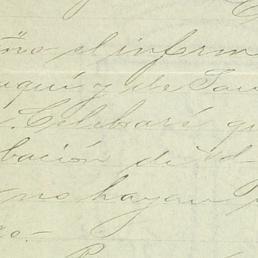 ño el inform
uquí y de Tau
. Celebraré qu
bación de Vd.
no hayan p
ro.-